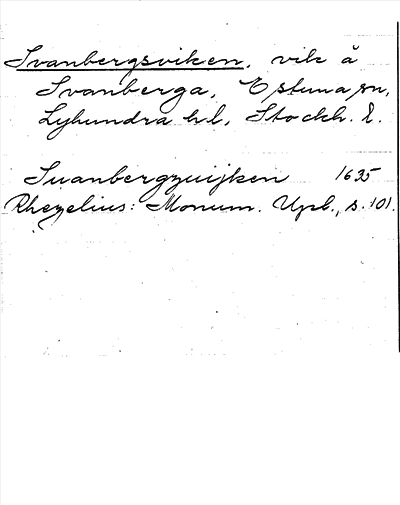 Svanbergsviken, vik å
Svanberga, Estuna sn,
Lyhundra hd, Stockh. l.
Suanbergzuijken 1635
Rhezelius: Monum. Upl., s. 101.